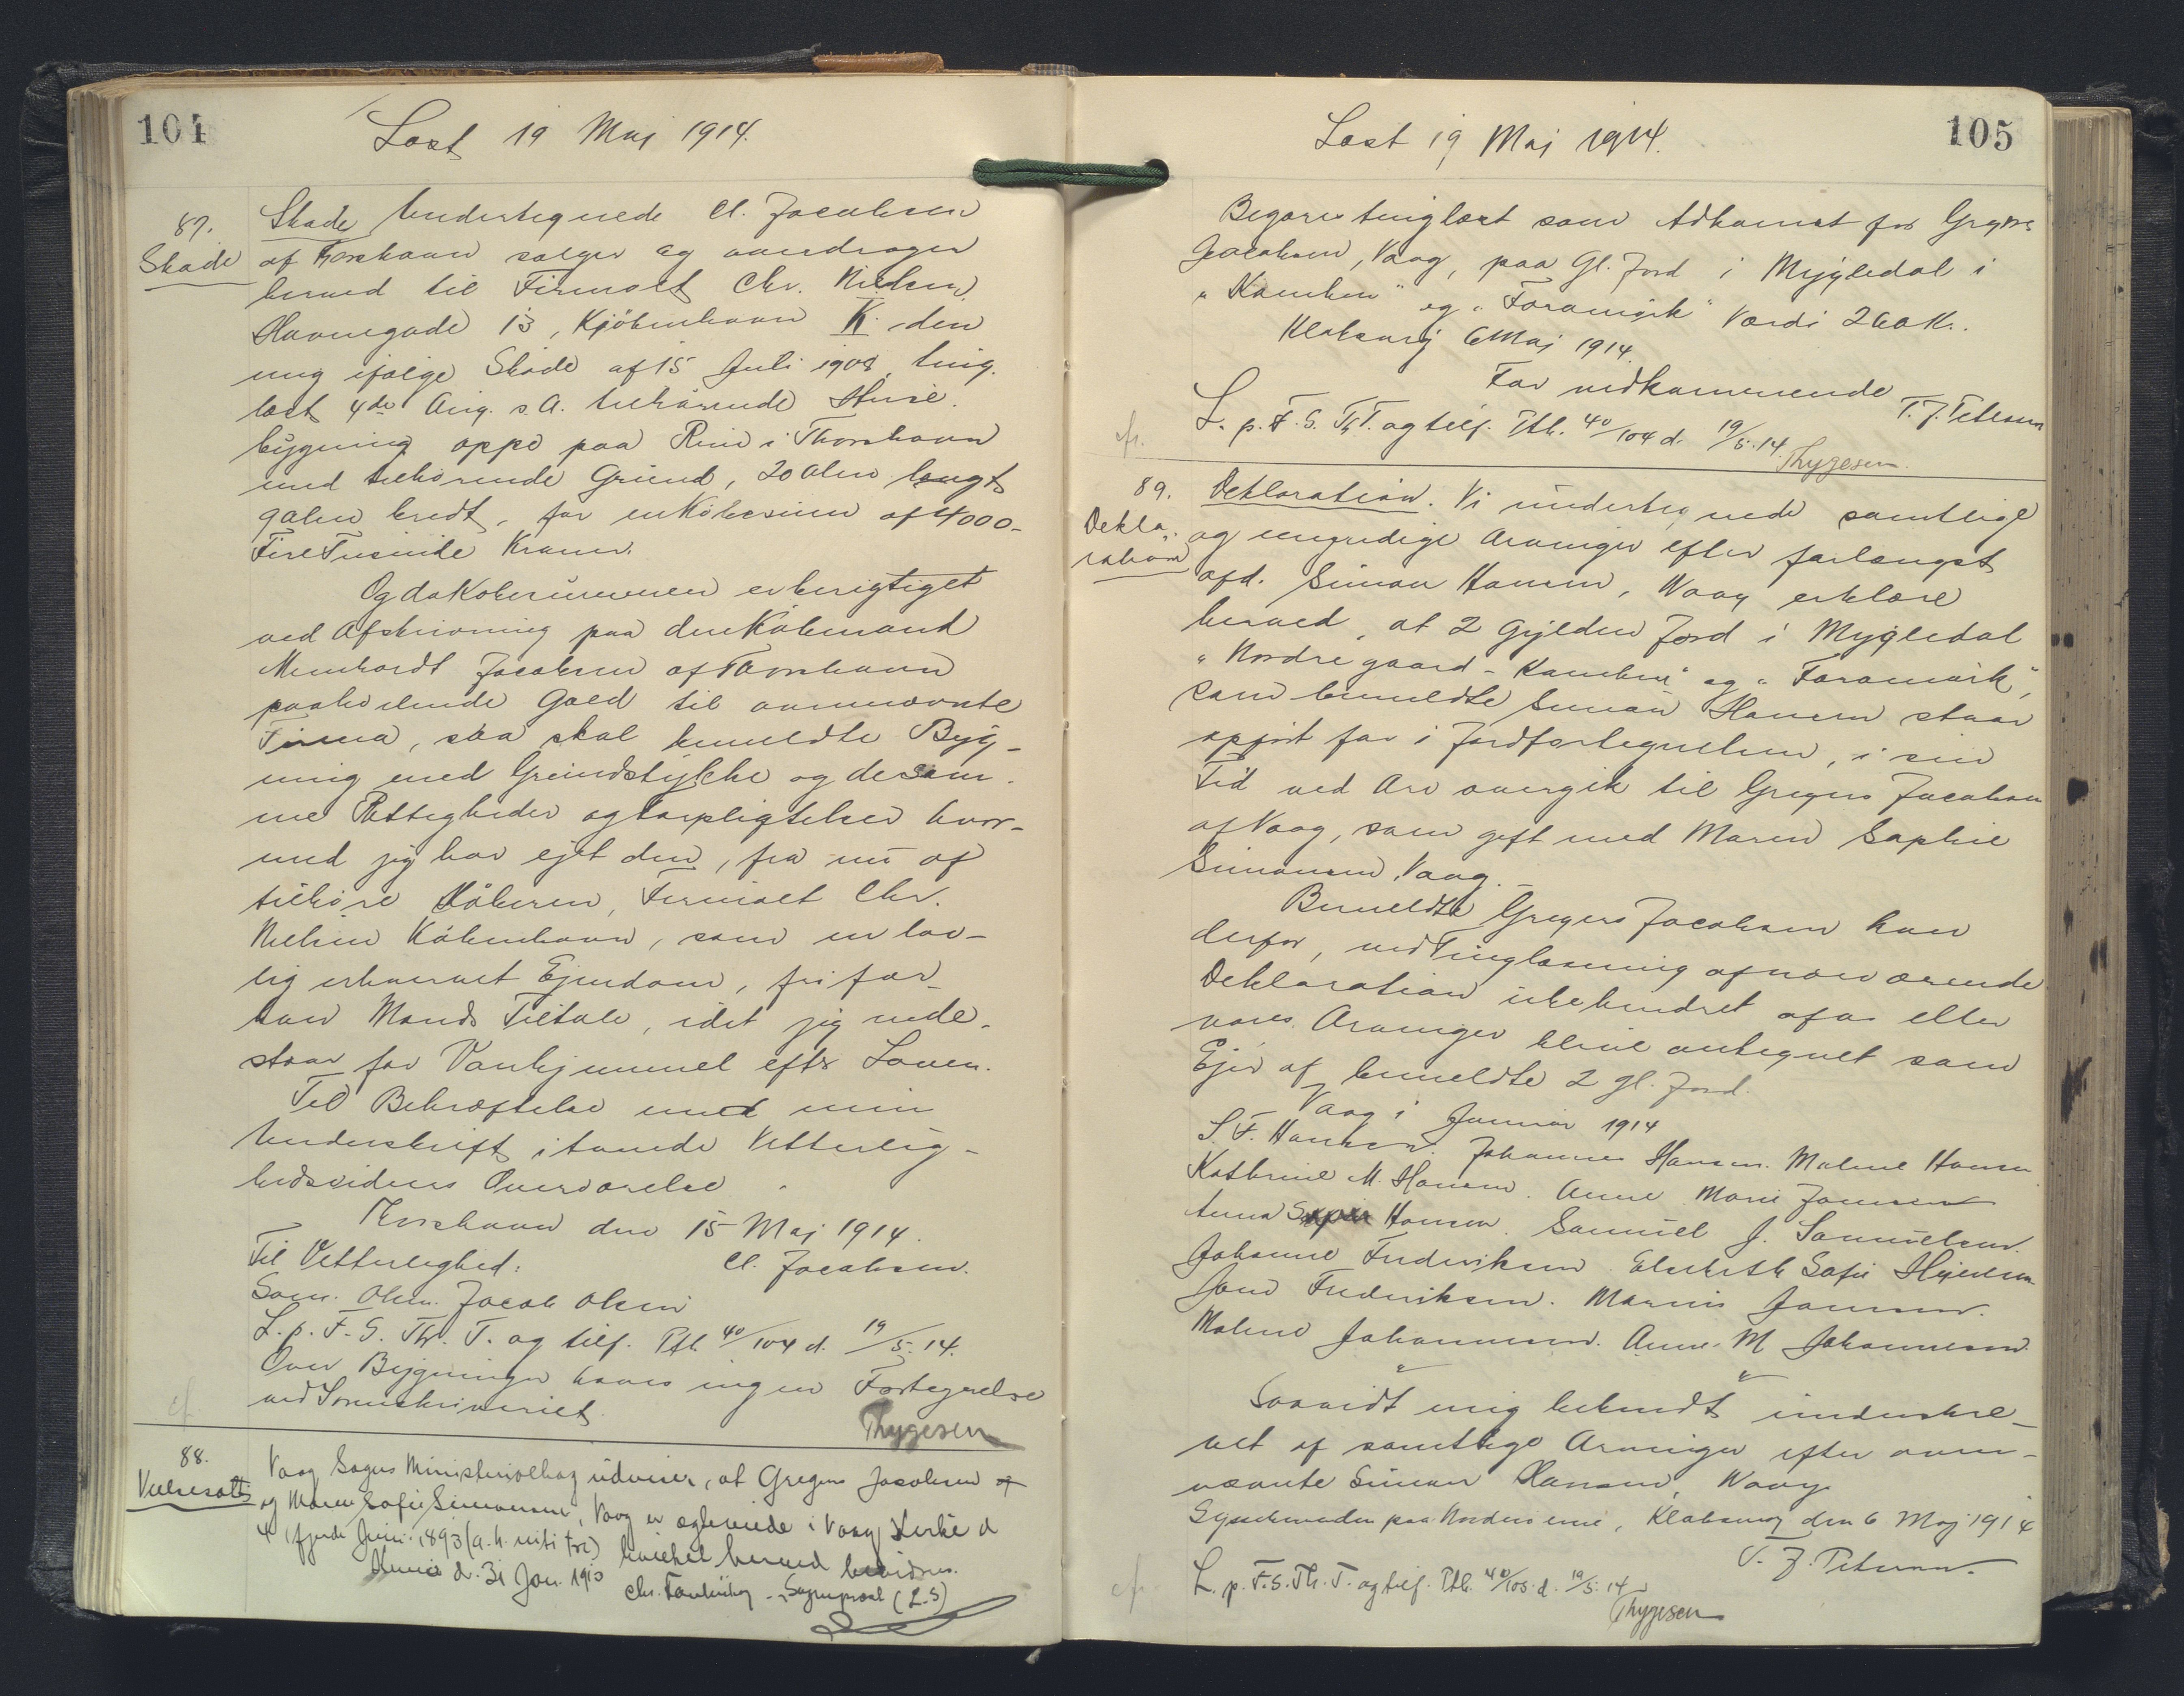 104
Læst 19 Maj 1914.
87.
Skøde
Skøde Undertegnede Cl. Jacobsen
af Thorshavn sælger og overdrager
herved til Firmaet Chr. Nielsen
Havnegade 13, Kjöbenhavn K. den
mig ifølge Skøde af 15 Juli 1908, ting-
læst 4de Aug. s. A. tilhørende Huse.
bygning oppe paa Rein i Thorshavn
med tilhörende Grund, 20 Alen langt
9 alen bredt, for en Köbesum af 4000-
Fire Tusinde Kroner.
Og da Köbesummen er berigtiget
ved Afskrivning paa den Købmand
Meinhardt Jacobsen af Thorshavn
paahvilende Gæld til ovennævnte
Firma, saa skal bemeldte Byg-
ning med Grundstykke og de sam-
me Rettigheder og Forpligtelser hvor-
med jeg har ejet den, fra nu af
tilhøre Köberen, Firmaet Chr.
Nielsen Köbenhavn, som en lov-
lig erhvervet Ejendom, fri for
hver Mands Tiltale, idet jeg inde-
staar for Vanhjemmel efter Loven.
Til Bekræftelse med min
Underskrift i tvende Vitterlig-
hedsvidners Overværelse.
Thorshavn den 15 Maj 1914.
Til Vitterlighed: Cl. Jacobsen.
Sam. Olsen. Jacob Olsen
L. p. F. S. Th. T. og tilf. Pth. 40/104 d. 19/5. 14.
Over Bygninger haves ingen Fortegnelse
ved Sorenskriveriet.
cf. Thygesen
88.
Vielsesatts
Vaag Sogns Ministerialbog udviser, at Gregers Jacobsen
og Maren Sofie Simonsen, Vaag er ægteviede i Vaag Kirke d
4 fjerde Juni 1893 (a. h. niti tre) hvilket herved bevidnes.
d. 31 Jan. 1910
Chr. - Sognepræst (L.S)
105
Læst 19 Maj 1914.
Begæres tinglæst som Adkomst for Gregers
Jacobsen, Vaag, paa Gl. Jord i Mygledal i
"Kamben" og "Foramyrk" Værdi 260 K.
Klaksvig 6 Maj 1914.
For vedkommende
T. J. Petersen
L. p. F. S. Th. T. og tilf. Pth. 40/104 d. 19/5. 14.
cfr. Thygesen
89.
Dekla-
ration
Deklaration. Vi undertegnede samtlige
og myndige Arvinger efter forlængst
afd. Simon Hansen, Vaag erklære
herved, at 2 Gylden Jord i Mygledal
"Nordregaard-Kamben" og "Foramörk",
som bemeldte Simon Hansen staar
opført for i Jordfortegnelsen, i sin
Tid ved Arv overgik til Gregers Jacobsen
af Vaag, som gift med Maren Sophie
Simonsen, Vaag.
Bemeldte Gregers Jacobsen kan
derfor, ved Tinglæsning af nærværende
Deklaration ubehindret af os eller
vores Arvinger blive antegnet som
Ejer af bemeldte 2 gl. Jord.
Vaag i Januar 1914
S. F. Hansen. Johannes Hansen. Malene Hansen
Kathrine M. Hansen. Anne Marie Joensen
Anna Hansen. Samuel J. Samuelsen.
Johanne Frederiksen. Elsebeth Sofie
Jens Frederiksen. Joensen.
Malene Johannesen. Anne M Johannesen.
Saavidt mig bekendt underskre-
vet af samtlige Arvinger efter oven-
nævnte Simon Hansen, Vaag.
Sysselmanden paa Norderøerne, Klaksvig den 6 Maj 1914
T. J. Petersen.
L. p. F. S. Th. T. og tilf. Pth. 40/105 d. 19/5. 14
cfr. Thygesen